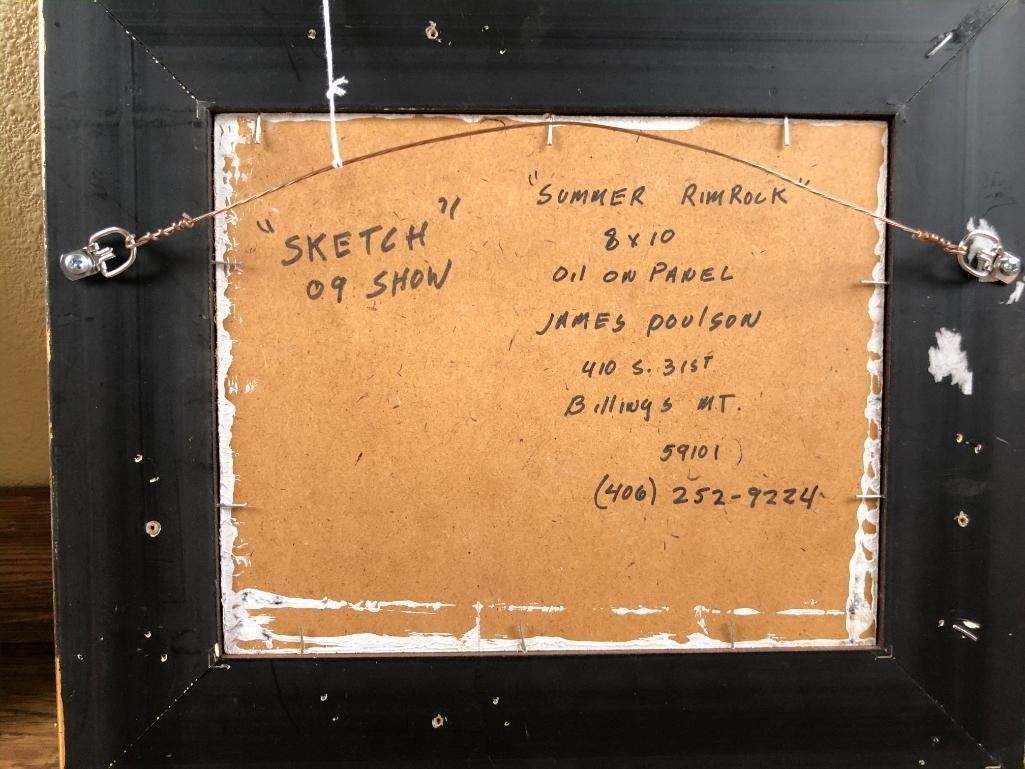 "SKETCH"
09 SHOW
"SUMMER RIMROCK"
8x10
Oil ON PANEL
JAMES POULSON
410 S. 31ST
Billings MT.
59101
(406) 252-9224